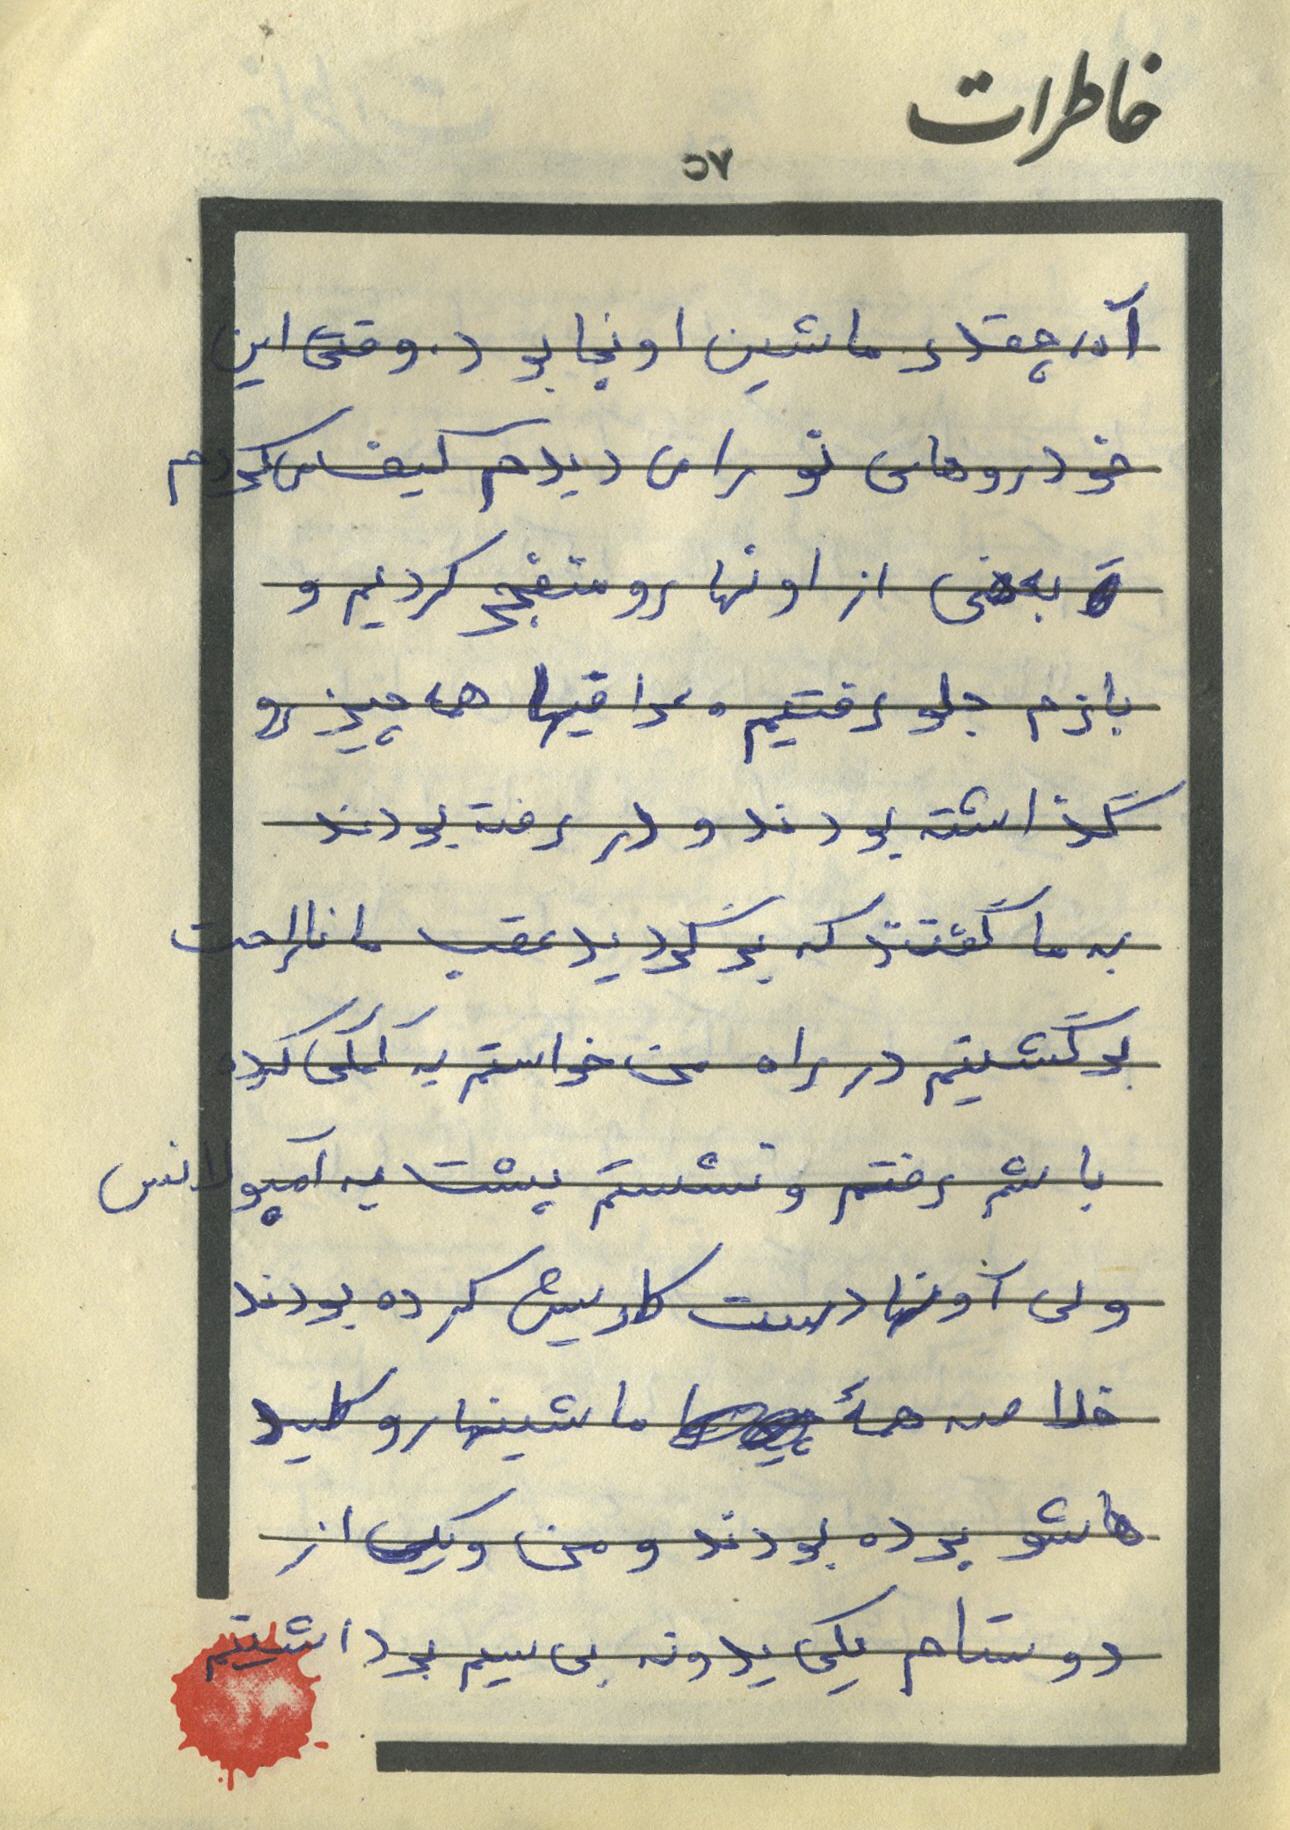 خاطرات
۵۷
آنهٔ چقدر ماشین اونجا بود. وقتی این
خودروهای تو رای دیدم کیف می کردم
بعضی از اونها رو منفجر کردیم و
بازم جلو رفتیم عراقیها همه چیز رو
گذاشته بودند و در رفته بودند
به ما گفتند که برگردید عقب ما ناراحت
برگشتیم در راه من خواستم یه کمکی کرده
باشم رفتم و نشستم پشت یه آمپولانس
ولی اونها دست کاریش کرده بودند
خلاصه همهٔ ماشینها رو کلید
هاشو برده بودند و من و یکی از
دوستام یکی یدونه بی سیم برداشتیم